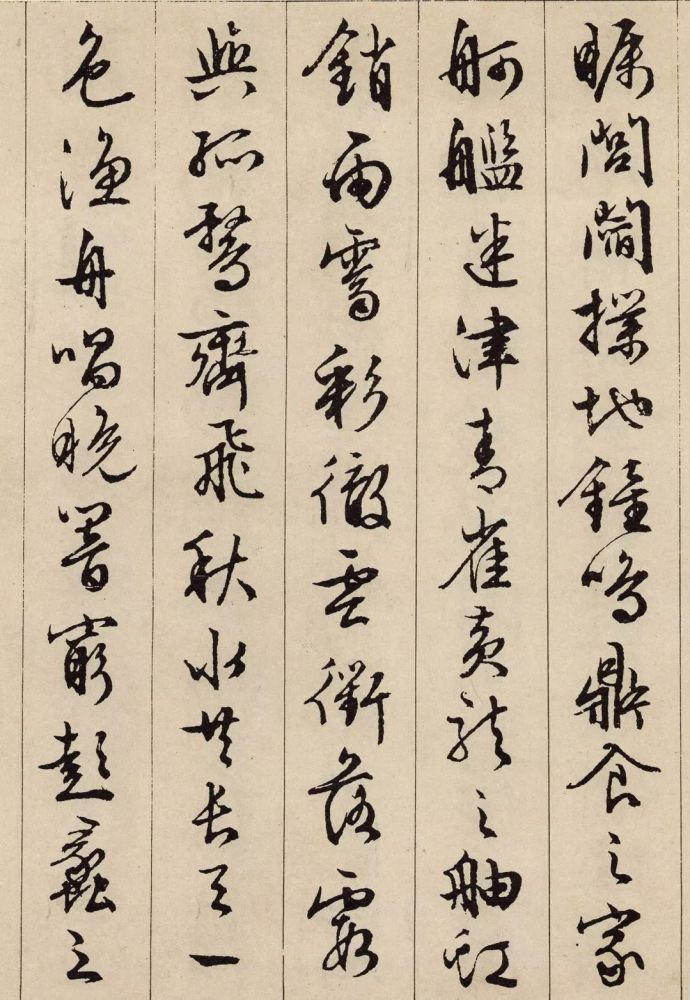 瞩闾阎撲地鍾鳴鼎食之家
舸艦迷津青雀黄龍之舳虹
銷雨霽彩徹雲衢落霞
與孤鶩齊飛秋水共長天一
色漁舟唱晚響窮彭蠡之